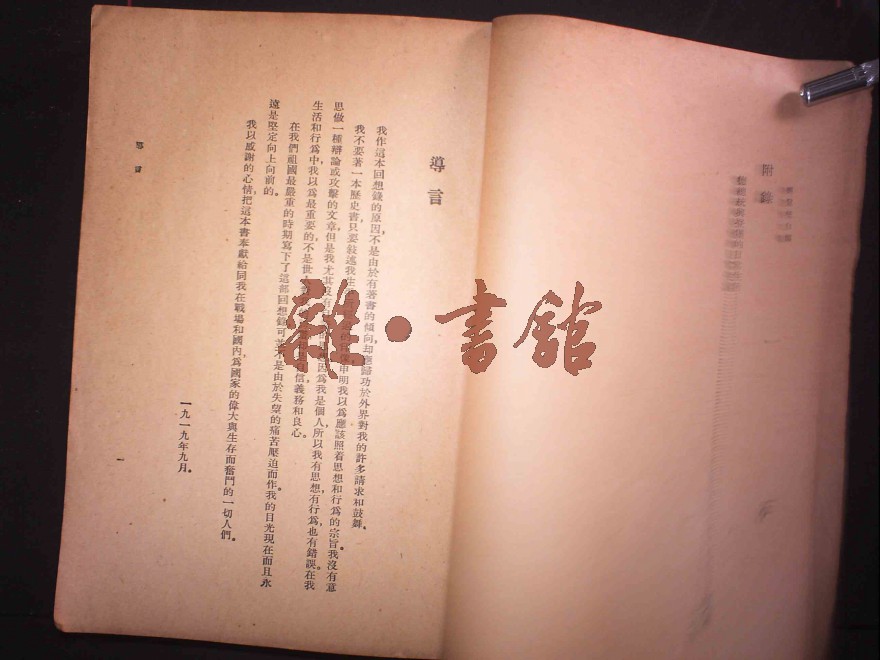 附錄
導言
我作這本回想錄的原因，不是由於有著書的傾向，却應歸功於外界對我的許多請求和鼓舞。
我不要著一本歷史書，只要敍述我生 申明我以爲應該照着思想和行爲的宗旨。我沒有意
思做一種辯論或攻擊的文章。但是我尤其沒有 因爲我是個人，所以我有思想，有行爲，也有錯誤。在我
生活和行爲中我以爲最重要的，不是世 信義務和良心。
在我們祖國最嚴重的時期寫下了這部回想錄，可 不是由於失望的痛苦壓迫而作。我的目光現在而且永
遠是堅定向上向前的。
我以感謝的心情，把這本書奉獻給同我在戰場和國內，爲國家的偉大與生存而奮鬥的一切人們。
一九一九年九月。
導言
一
雜·書館